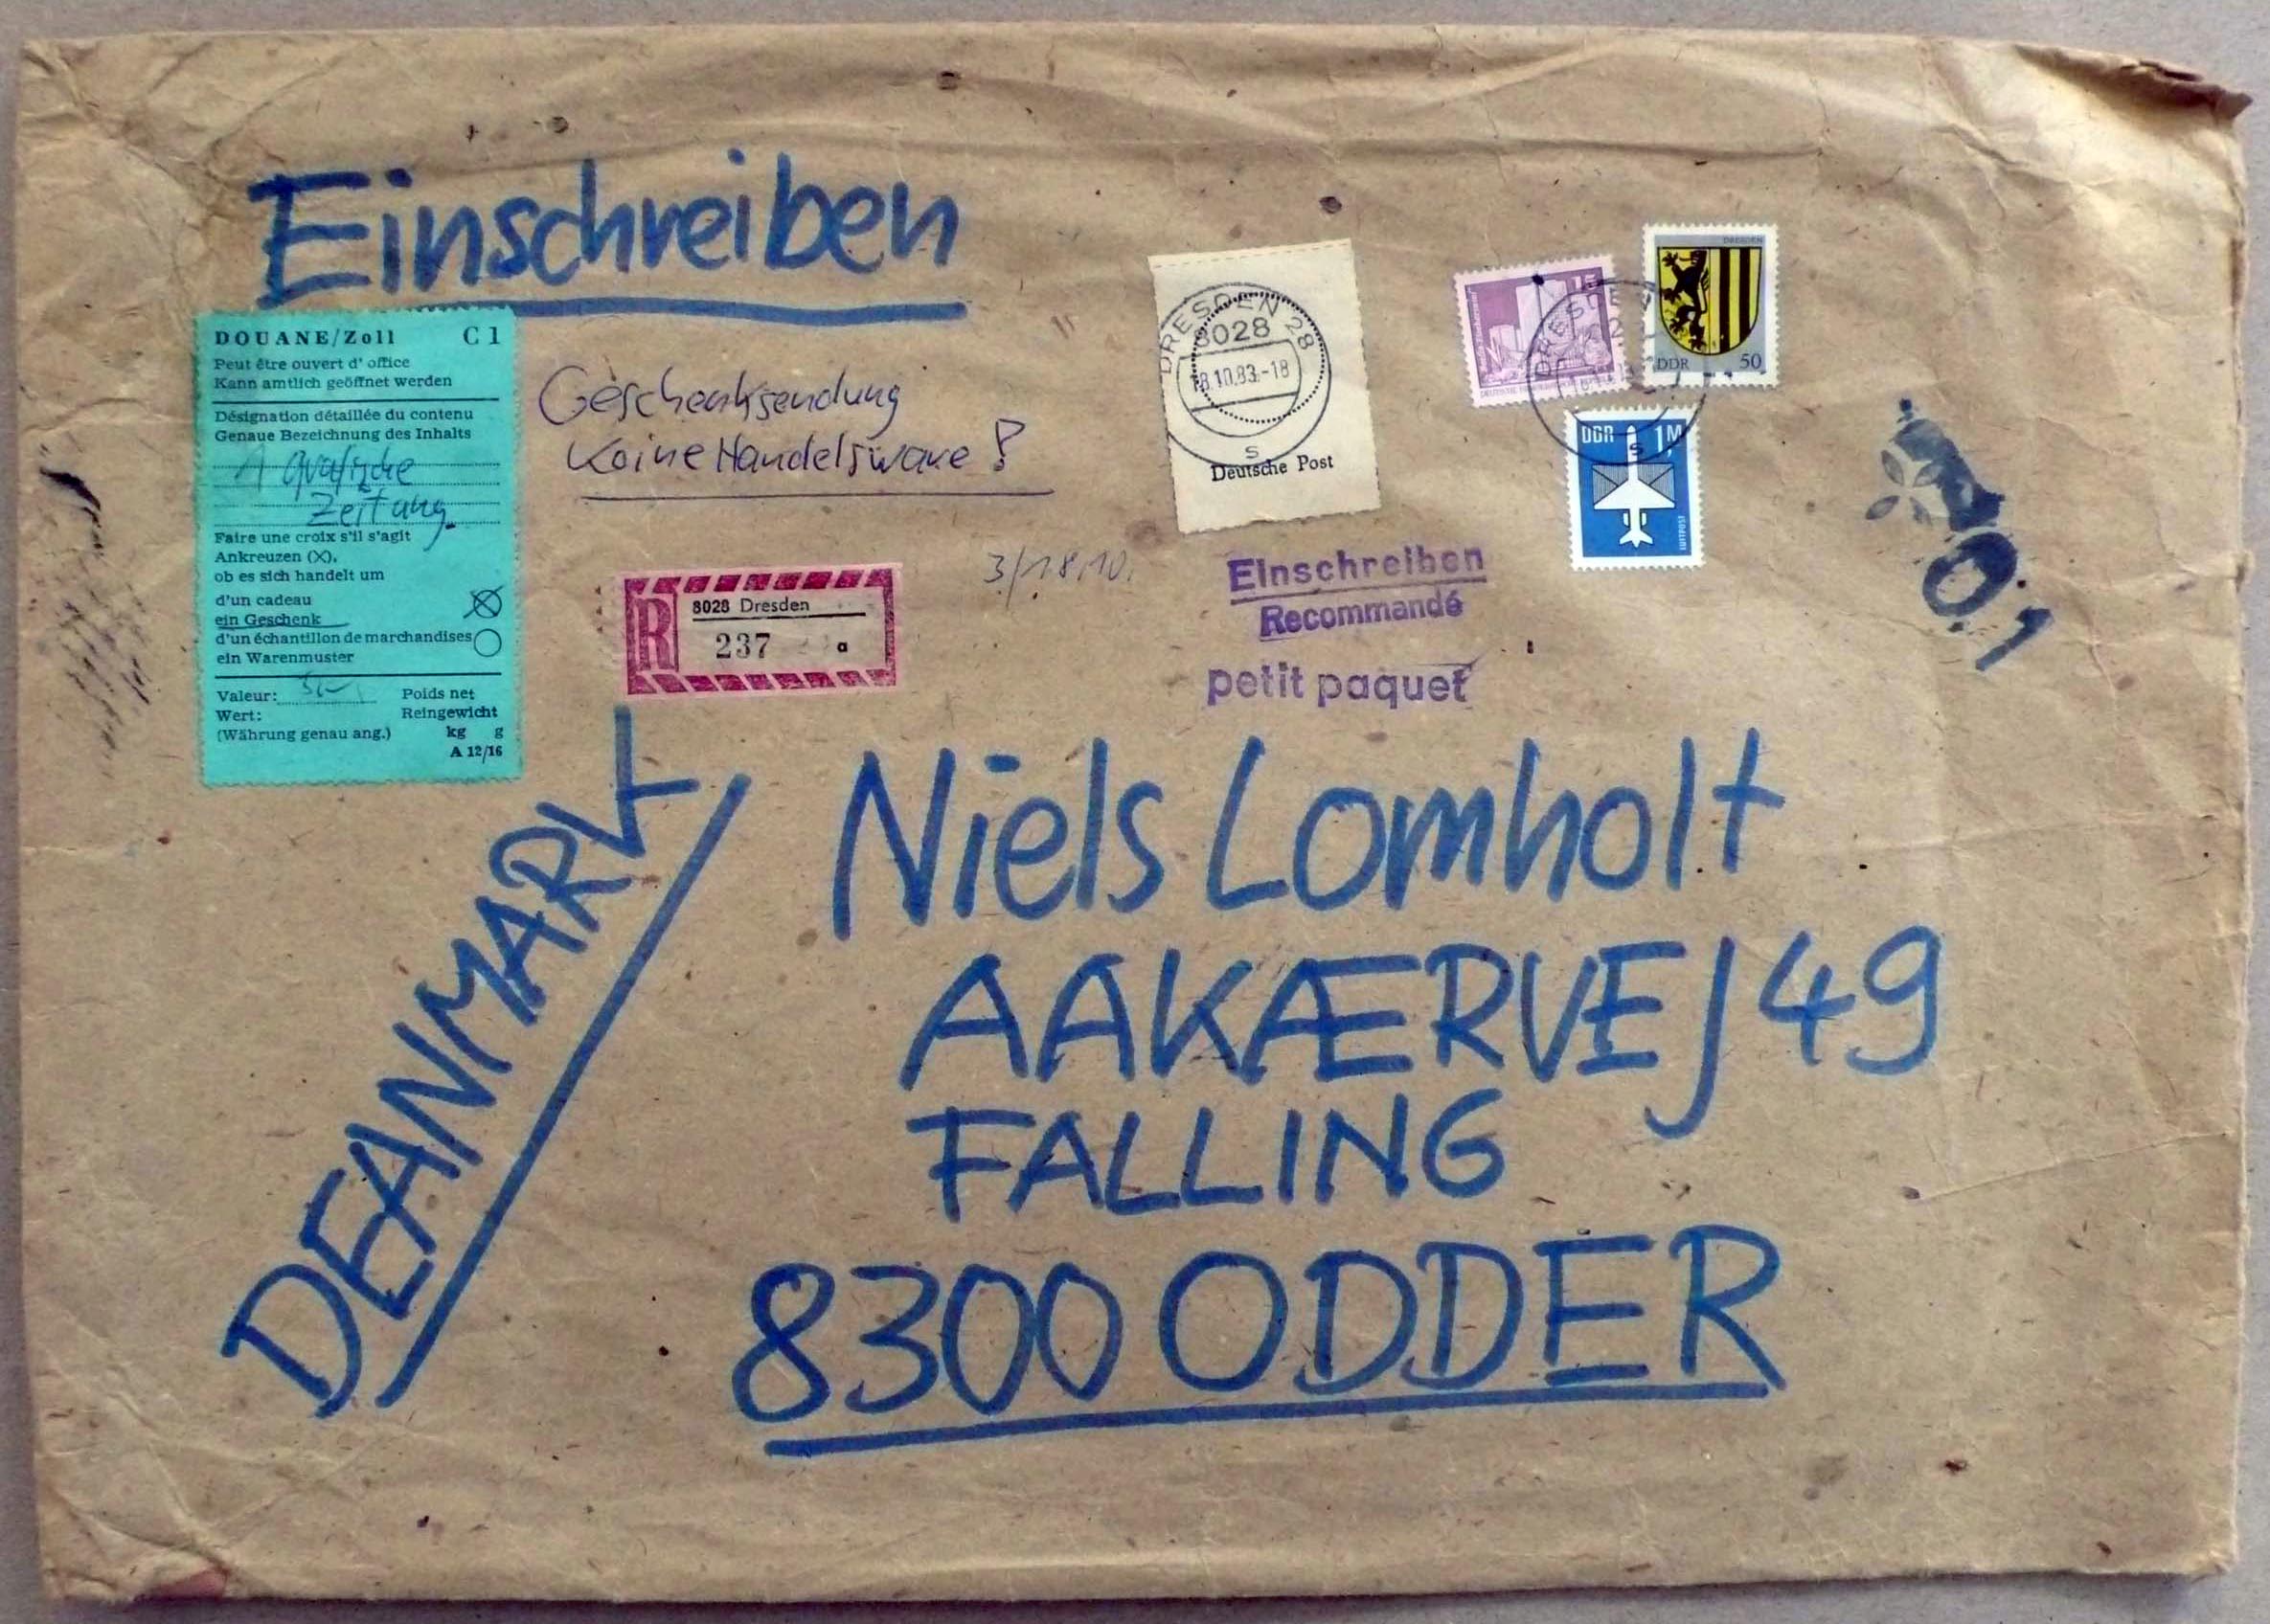 Einschreiben
DOUANE/Zoll C 1
Peut être ouvert d' office
Kann amtlich geöffnet werden
Désignation détaillée du contenu
Genaue Bezeichnung des Inhalts
1
Zeitung
Faire une croix s'il s'agit
Ankreuzen (X),
ob es sich handelt um
d'un cadeau
ein Geschenk
d'un échantillon de marchandises
ein Warenmuster
Valeur:
Poids net
Wert:
Reingewicht
(Währung genau ang.)
kg g
A 12/16
Geschenksendung
Keine Handelsware!
R
8028 Dresden
237 a
3/18.10.
DRESDEN 28
8028
18.10.83.-18
s
Deutsche Post
15
DRESDEN
DDR 50
DDR 1M
LUFTPOST
s
Einschreiben
Recommandé
petit paquet
0.1
DEANMARK
Niels Lomholt
AAKÆRVEJ 49
FALLING
8300 ODDER